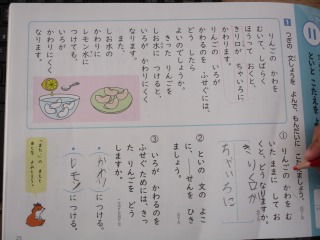 11
といとこたえを
1 つぎの 文しょうを よんで、もんだいに こたえましょう。
りんごの かわを
むいて、しばらく
ほうって おくと
きり口が ちゃいろに
かわります。
りんごの いろが
かわるのを ふせぐには、
どう したら
よいのでしょうか。
きった りんごを
しお水に つけると、
いろが かわりにくく
なります。
また、
しお水の
かわりに
レモン水に
つけても、
いろが
かわりにくく
なります。
① りんごの かわを む
いたままに して お
くと、どう なりますか。
き り口が
ちゃいろに
② といの 文の よこ
に、――せんを ひき
ましょう。
③ いろが かわるのを
ふせぐためには、きっ
た りんごを どう
しますか。
につける。
レモン
につける。